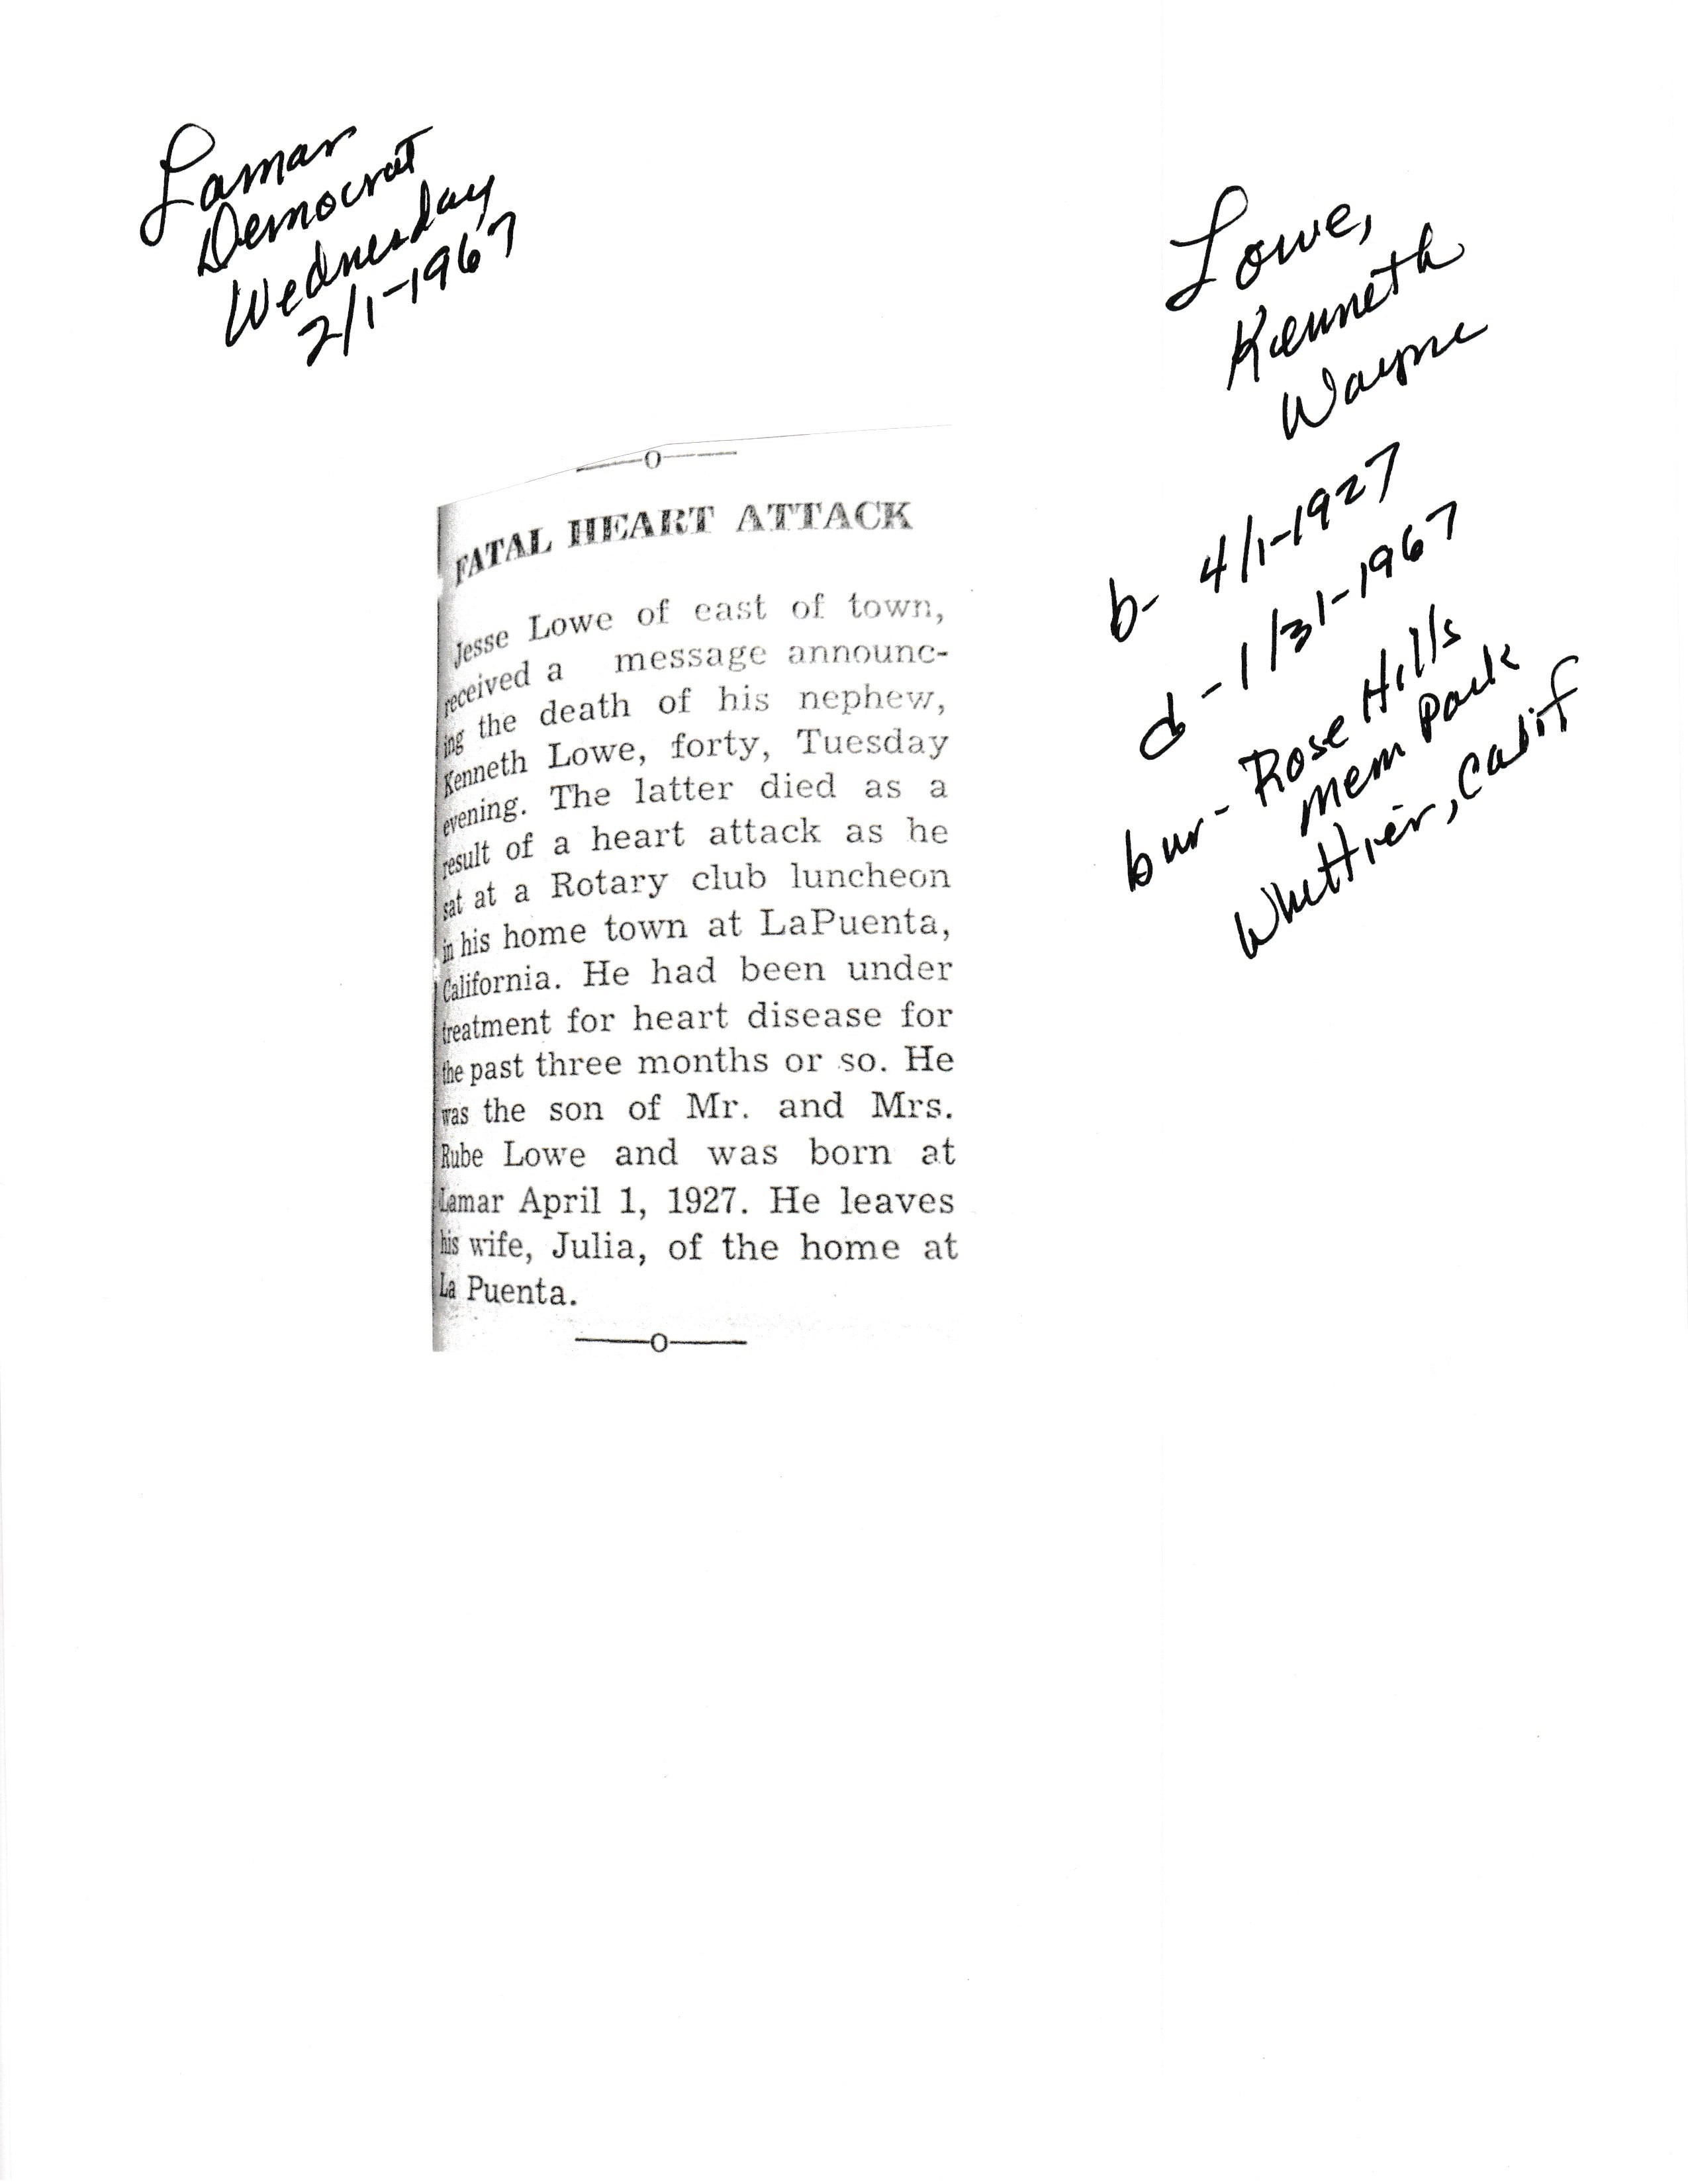 Lamar
Democrat
Wednesday
2/1-1967
Lowe,
Kenneth
Wayne
b- 4/1-1927
d-1/31-1967
bur- Rose Hills
Mem Park
Whittier, Calif
—O—
FATAL HEART ATTACK
Jesse Lowe of east of town,
received a message announc-
ing the death of his nephew,
Kenneth Lowe, forty, Tuesday
evening. The latter died as a
result of a heart attack as he
sat at a Rotary club luncheon
in his home town at LaPuenta,
California. He had been under
treatment for heart disease for
the past three months or so. He
was the son of Mr. and Mrs.
Rube Lowe and was born at
Lamar April 1, 1927. He leaves
his wife, Julia, of the home at
La Puenta.
—O—